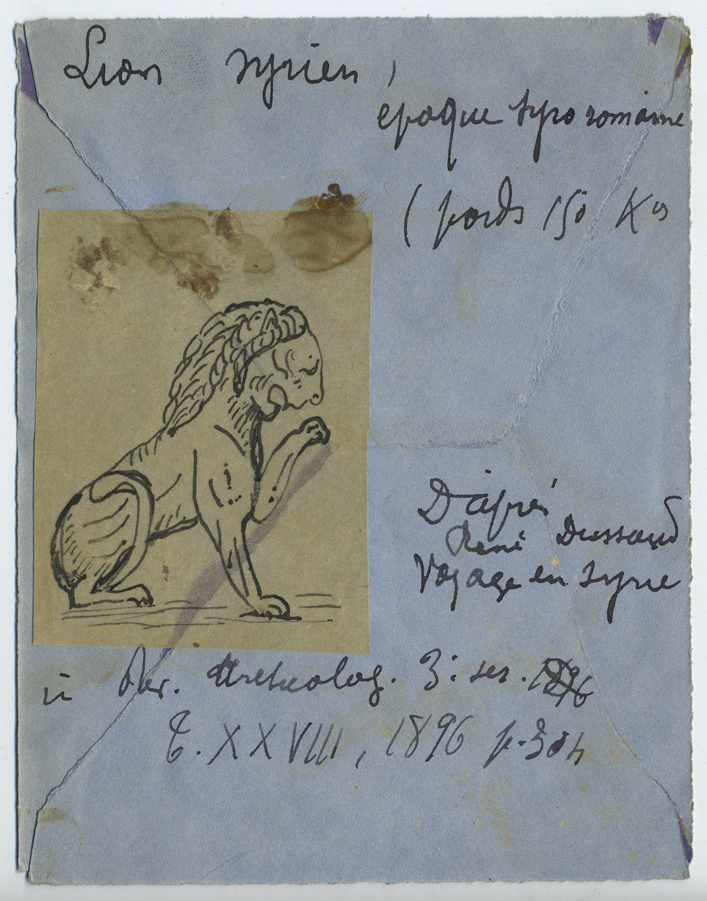 Lion syrien,
epoque syro romaine
(poids 150 Kos
D'après
René Dussaud
Voyage en Syrie
in Rev. Archeolog. 3: ser. 1896
T. XXVIII, 1896 p. 304